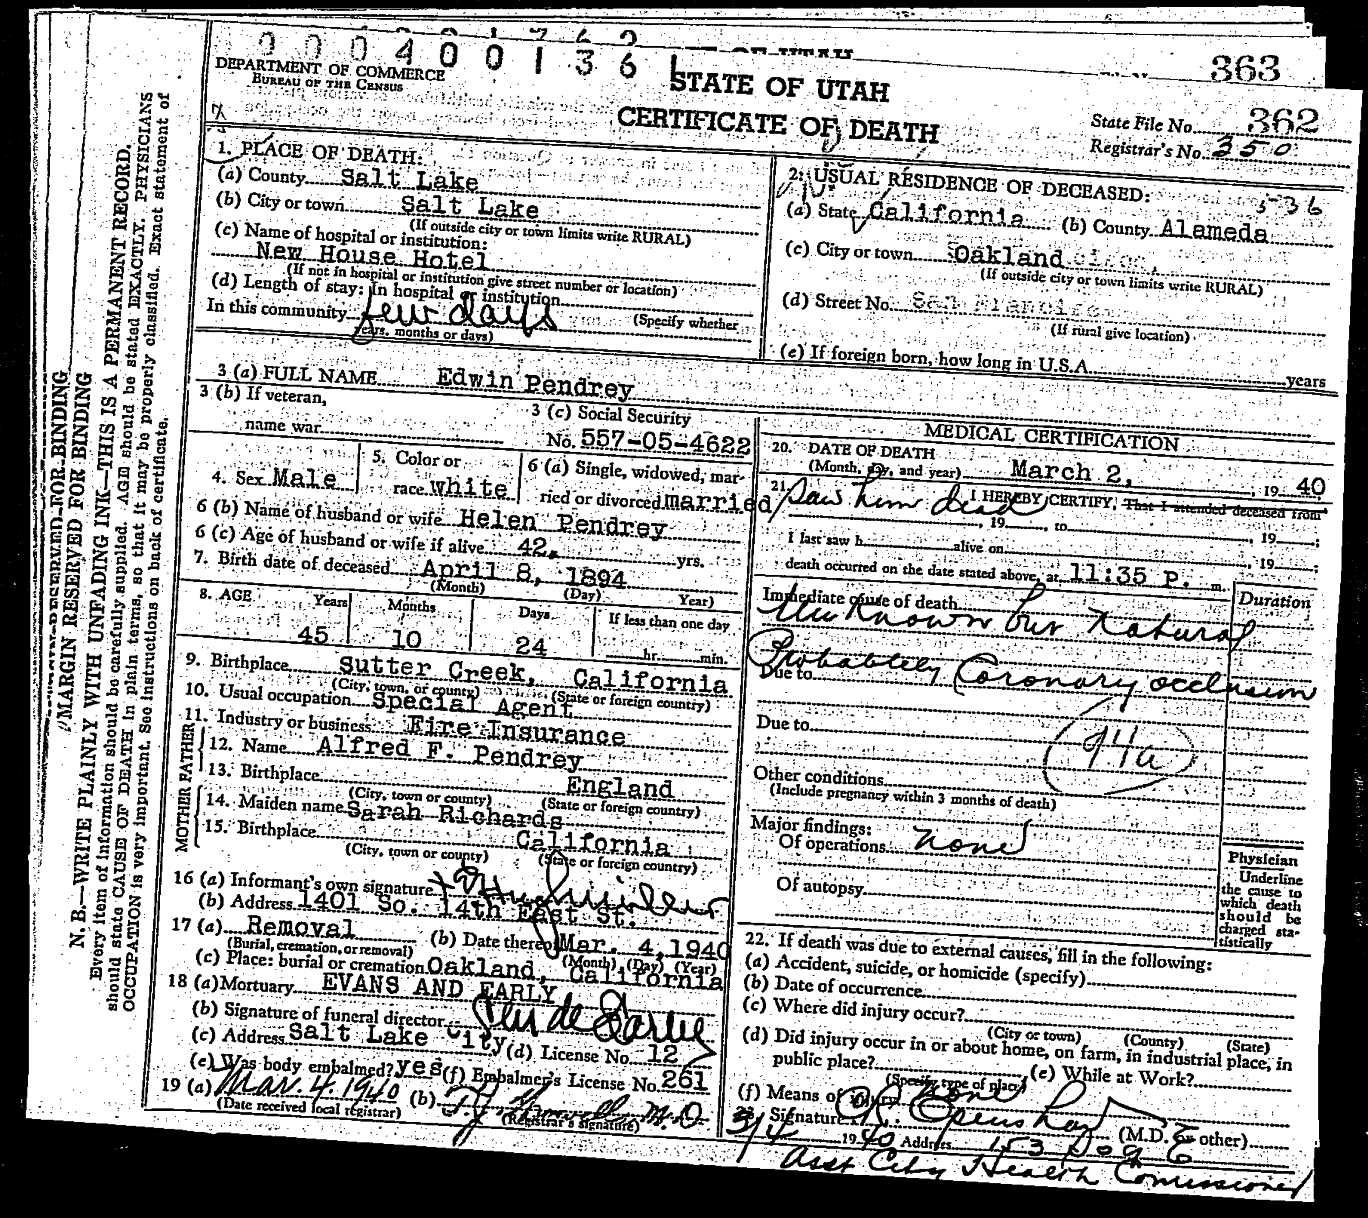 000400136
363
DEPARTMENT OF COMMERCE
BUREAU OF THE CENSUS
STATE OF UTAH
CERTIFICATE OF DEATH
State File No. 362
Registrar's No. 350
1. PLACE OF DEATH:
(a) County Salt Lake
(b) City or town Salt Lake
(If outside city or town limits write RURAL)
(c) Name of hospital or institution:
New House Hotel
(If not in hospital or institution give street number or location)
(d) Length of stay: In hospital or institution
(Specify whether
In this community few days
years, months or days)
2. USUAL RESIDENCE OF DECEASED:
(a) State California (b) County Alameda
(c) City or town Oakland
(If outside city or town limits write RURAL)
(d) Street No.
(If rural give location)
(e) If foreign born, how long in U.S.A. years
3 (a) FULL NAME Edwin Pendrey
3 (b) If veteran,
name war
3 (c) Social Security
No. 557-05-4622
4. Sex Male
5. Color or
race white
6 (a) Single, widowed, mar-
ried or divorced married
6 (b) Name of husband or wife Helen Pendrey
6 (c) Age of husband or wife if alive 42, yrs.
7. Birth date of deceased April 8, 1894
(Month) (Day) Year)
8. AGE Years Months Days If less than one day
45 10 24 hr. min.
9. Birthplace Sutter Creek, California
(City, town, or county) (State or foreign country)
10. Usual occupation Special Agent
11. Industry or business Fire Insurance
FATHER
12. Name Alfred F. Pendrey
13. Birthplace England
(City, town or county) (State or foreign country)
MOTHER
14. Maiden name Sarah Richards
15. Birthplace California
(City, town or county) (State or foreign country)
16 (a) Informant's own signature
(b) Address 1401 So. 14th East St.
17 (a) Removal (b) Date thereof Mar. 4, 1940
(Burial, cremation, or removal) (Month) (Day) (Year)
(c) Place: burial or cremation Oakland, California
18 (a) Mortuary EVANS AND EARLY
(b) Signature of funeral director
(c) Address Salt Lake City (d) License No. 12
(e) Was body embalmed? yes (f) Embalmer's License No. 261
19 (a) Mar. 4, 1940 (b) M. D
(Date received local registrar) (Registrar's signature)
MEDICAL CERTIFICATION
20. DATE OF DEATH
(Month, day, and year) March 2, , 19 40
21. Saw him dead I HEREBY CERTIFY, That I attended deceased from
, 19 , to , 19 ;
I last saw h alive on , 19 ;
death occurred on the date stated above, at 11:35 P. m.
Immediate cause of death Duration
Unknown but Natural
Probablely Coronary occlusion
Due to
Due to
94a
Other conditions
(Include pregnancy within 3 months of death)
Major findings:
Of operations none
Of autopsy
Physician
Underline
the cause to
which death
should be
charged sta-
tistically
22. If death was due to external causes, fill in the following:
(a) Accident, suicide, or homicide (specify)
(b) Date of occurrence
(c) Where did injury occur?
(City or town) (County) (State)
(d) Did injury occur in or about home, on farm, in industrial place, in
public place? (e) While at Work?
(Specify type of place)
(f) Means of injury none
23. Signature Openshaw (M.D. or other)
3/4 1940 Address
Asst City Health Comissioner
MARGIN RESERVED FOR BINDING
N. B.—WRITE PLAINLY WITH UNFADING INK—THIS IS A PERMANENT RECORD.
Every item of information should be carefully supplied. AGE should be stated EXACTLY. PHYSICIANS
should state CAUSE OF DEATH in plain terms, so that it may be properly classified. Exact statement of
OCCUPATION is very important. See instructions on back of certificate.